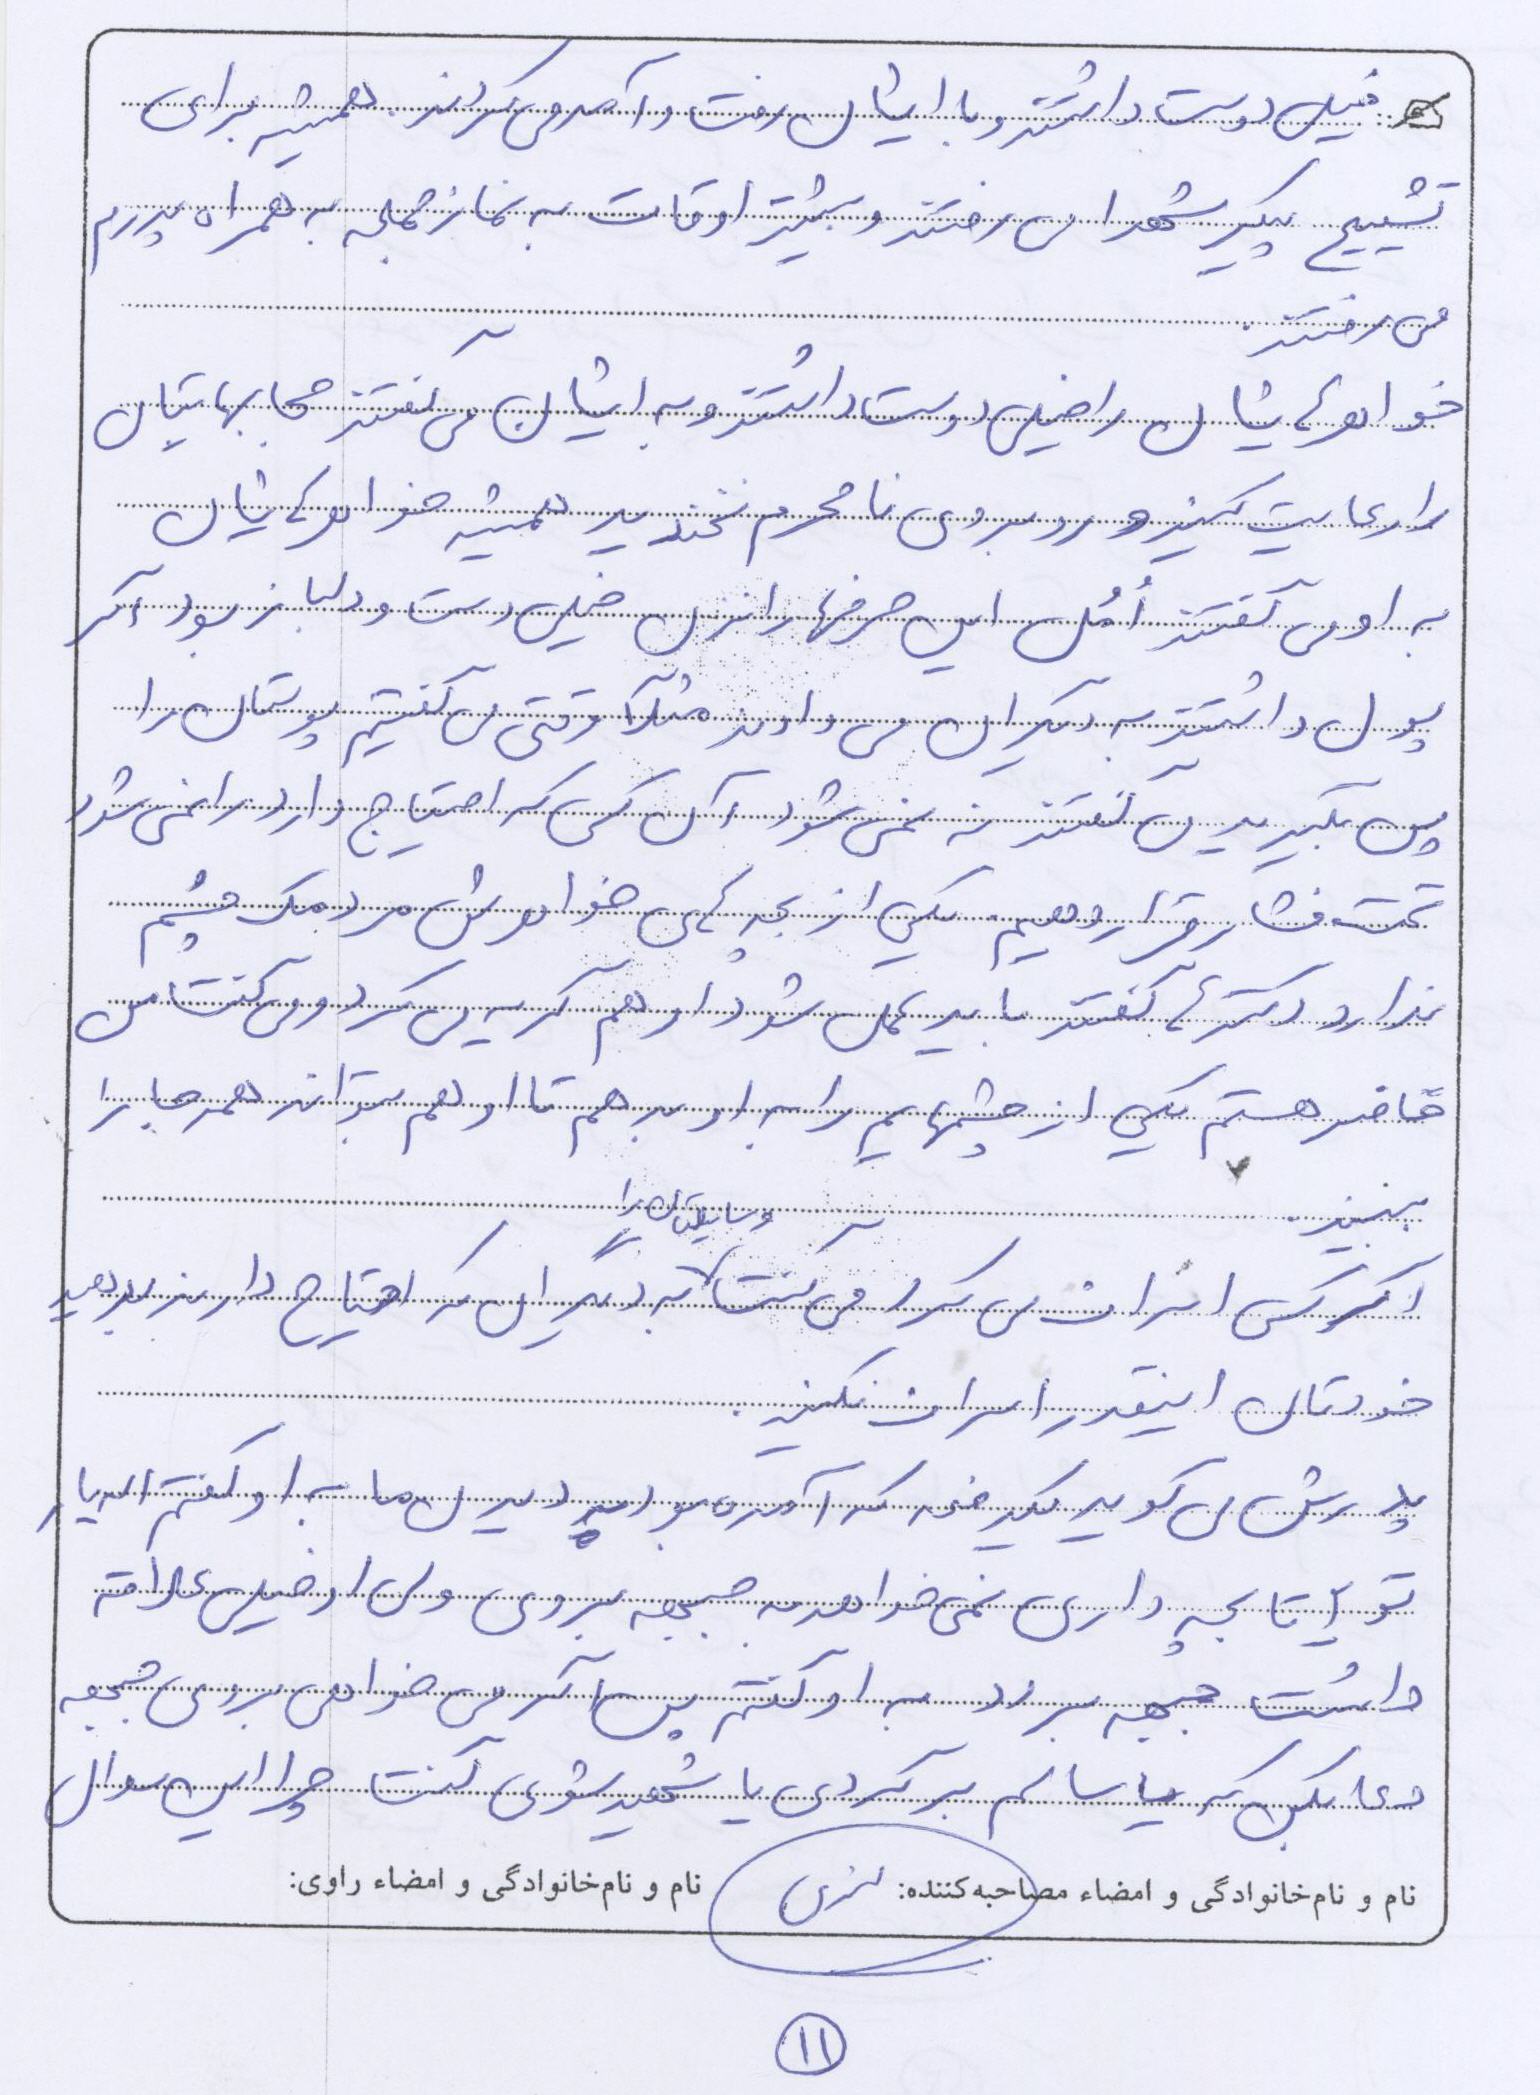 خیلی دوست داشتند و با ایشان رفت و آمد می کردند. همیشه برای
تشییع پیکر شهدا می رفتند و بیشتر اوقات به نماز جمعه به همراه پدرم
می رفتند.
خواهرهایشان را خیلی دوست داشتند و به ایشان می گفتند حجابهایتان
را رعایت کنید و رو بروی نامحرم نخندید همیشه خواهرهایشان
به او می گفتند اُمُل این حرفها را نزن خیلی دست و دلباز بود اگر
پول داشتند به دیگران می دادند مثلاً وقتی می گفتیم پولتان را
پس بگیرید می گفتند نه نمی شود آن کسی که احتیاج دارد را نمی شود
تحت فشار قرار دهیم. یکی از بچه های خواهرش مردمک چشم
ندارد دکترها گفتند باید عمل شود او هم گریه می کرد و می گفت من
حاضر هستم یکی از چشمهایم را به او بدهم تا او هم بتواند همه جا را
ببیند.
وسایلتان را
اگر کسی اسراف می کرد می گفت به دیگران که احتیاج دارند بدهید
خودتان اینقدر اسراف نکنید.
پدرش می گوید یکدفعه که آمده بود دیدن ما به او گفتم اله یار
تو ۴ تا بچه داری نمی خواهد به جبهه بروی ولی او خیلی علاقه
داشت جبهه برود به او گفتم پس اگر می خواهی بروی جبهه
دعا بکن که یا سالم برگردی یا شهید شوی گفت چرا این سوال
نام و نام‌خانوادگی و امضاء مصاحبه‌کننده: نام و نام‌خانوادگی و امضاء راوی:
۱۱